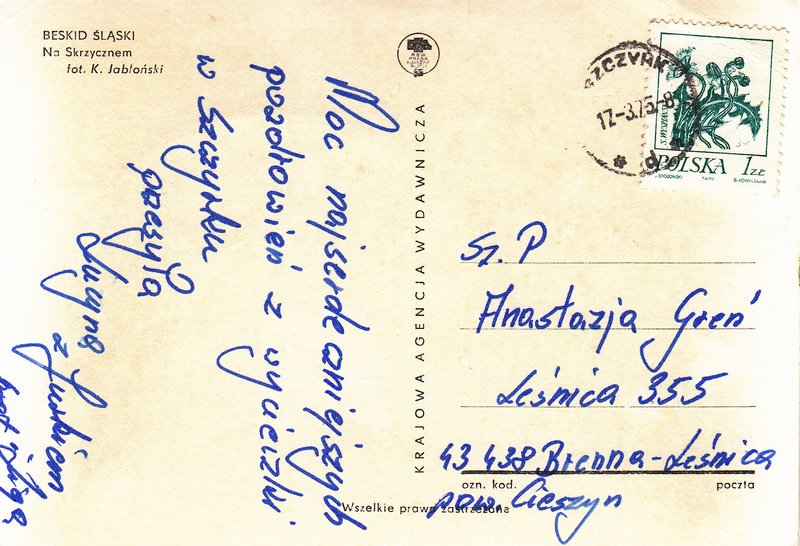 BESKID ŚLĄSKI
Na Skrzycznem
fot. K. Jabłoński
Moc najserdeczniejszych
pozdrowień z wycieczki
w Szczyrku
przesyła
z Jurkiem
KRAJOWA AGENCJA WYDAWNICZA
SZCZYRK
17-3.75-8
POLSKA 1 ZŁ
Sz. P
Anastazja Greń
Leśnica 355
43 438 Brenna-Leśnica
pow. Cieszyn
ozn. kod. poczta
Wszelkie prawa zastrzeżone